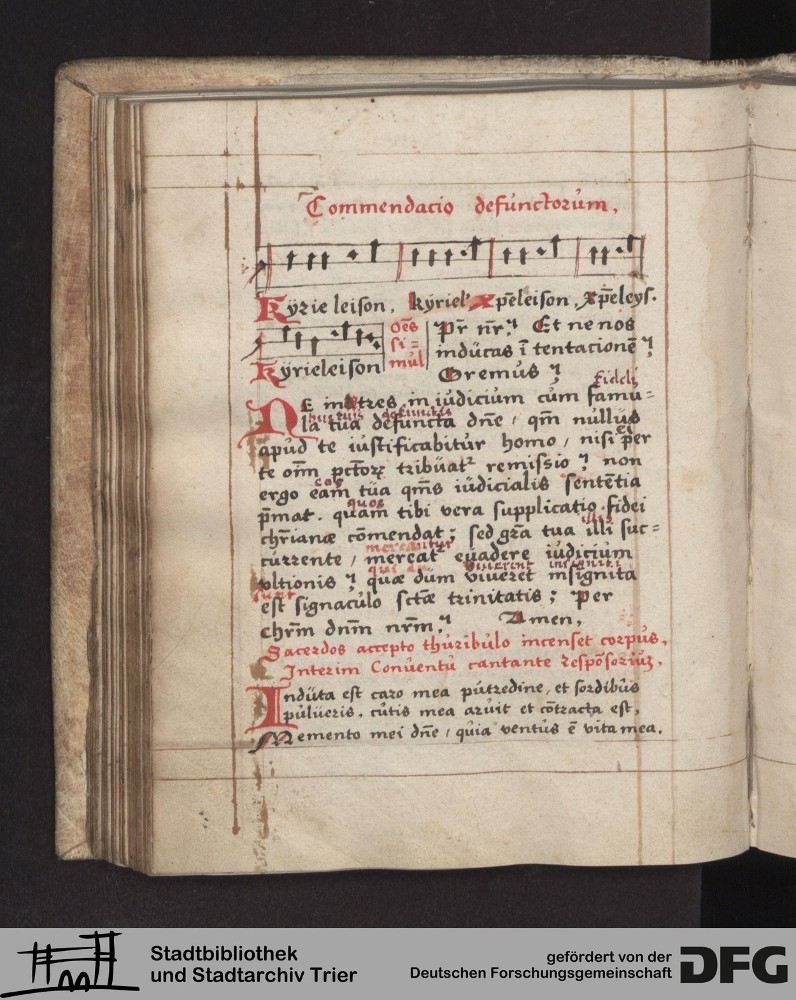 Commendacio defunctorum,
Kÿrie leison, kÿriel' xp̄eleison, xp̄eleys.
oēs
si=
mul
Pr̄ nr̄ꝰ Et ne nos
inducas ī tentacionē
Kÿrieleison
Oremus
fideli
NE intres in iudicium cum famu=
la tua defuncta dn̄e / qm̄ nullus
apud te iustificabitur homo / nisi per
te om̄ pctōꝝ tribuat᷑ remissio non
eos
ergo eam tua qm̄s iudicialis sentētia
quos
p̄mat. quam tibi vera supplicatio fidei
chr̄ianæ cōmendat; sed gr̄a tua illi suc=
mereantur
currente / mereat᷑ euadere iudicium
qui viuerent insigniti
vltionis quæ dum viueret insignita
sunt
est signaculo sctæ trinitatis; Per
chrm̄ dnm̄ nrm̄. Amen,
Sacerdos accepto thuribulo incenset corpus,
Interim Conuentu cantante respōsoriuȝ,
Induta est caro mea putredine, et sordibus
pulueris, cutis mea aruit et cōtracta est,
Memento mei dn̄e / quia ventus ē vita mea,
Stadtbibliothek
und Stadtarchiv Trier
gefördert von der
Deutschen Forschungsgemeinschaft
DFG